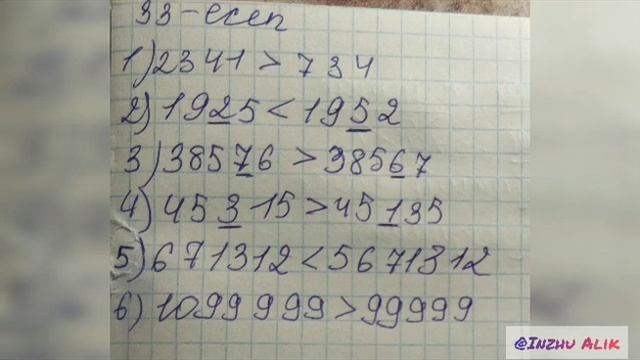 33-есеп
1) 2341 > 734
2) 1925 < 1952
3) 38576 > 38567
4) 45315 > 45135
5) 671312 < 5671312
6) 1099999 > 99999
@Inzhu Alik